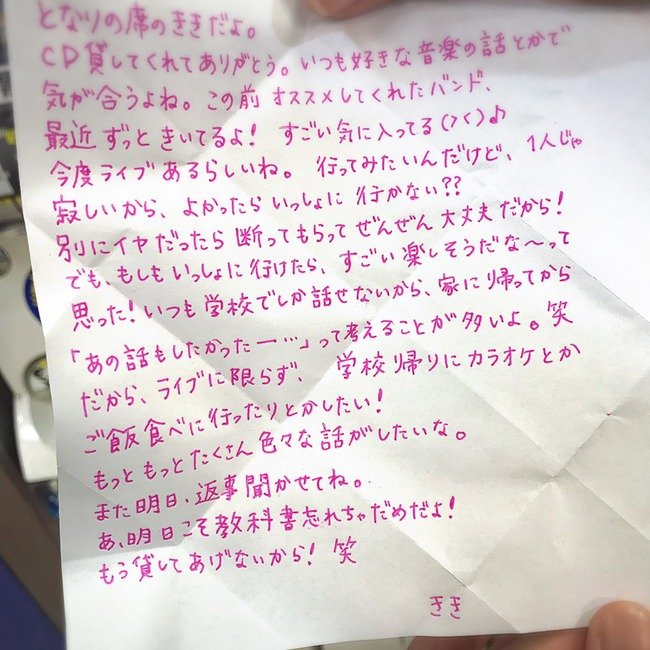 となりの席のききだよ。
CD貸してくれてありがとう。いつも好きな音楽の話とかで
気が合うよね。この前オススメしてくれたバンド、
最近ずっときいてるよ! すごい気に入ってる(><)♪
今度ライブあるらしいね。行ってみたいんだけど、1人じゃ
寂しいから、よかったらいっしょに行かない??
別にイヤだったら断ってもらってぜんぜん大丈夫だから!
でも、もしもいっしょに行けたら、すごい楽しそうだな〜って
思った!いつも学校でしか話せないから、家に帰ってから
「あの話もしたかったー…」って考えることが多いよ。笑
だから、ライブに限らず、学校帰りにカラオケとか
ご飯食べに行ったりとかしたい!
もっともっとたくさん色々な話がしたいな。
また明日、返事聞かせてね。
あ、明日こそ教科書忘れちゃだめだよ!
もう貸してあげないから! 笑
きき